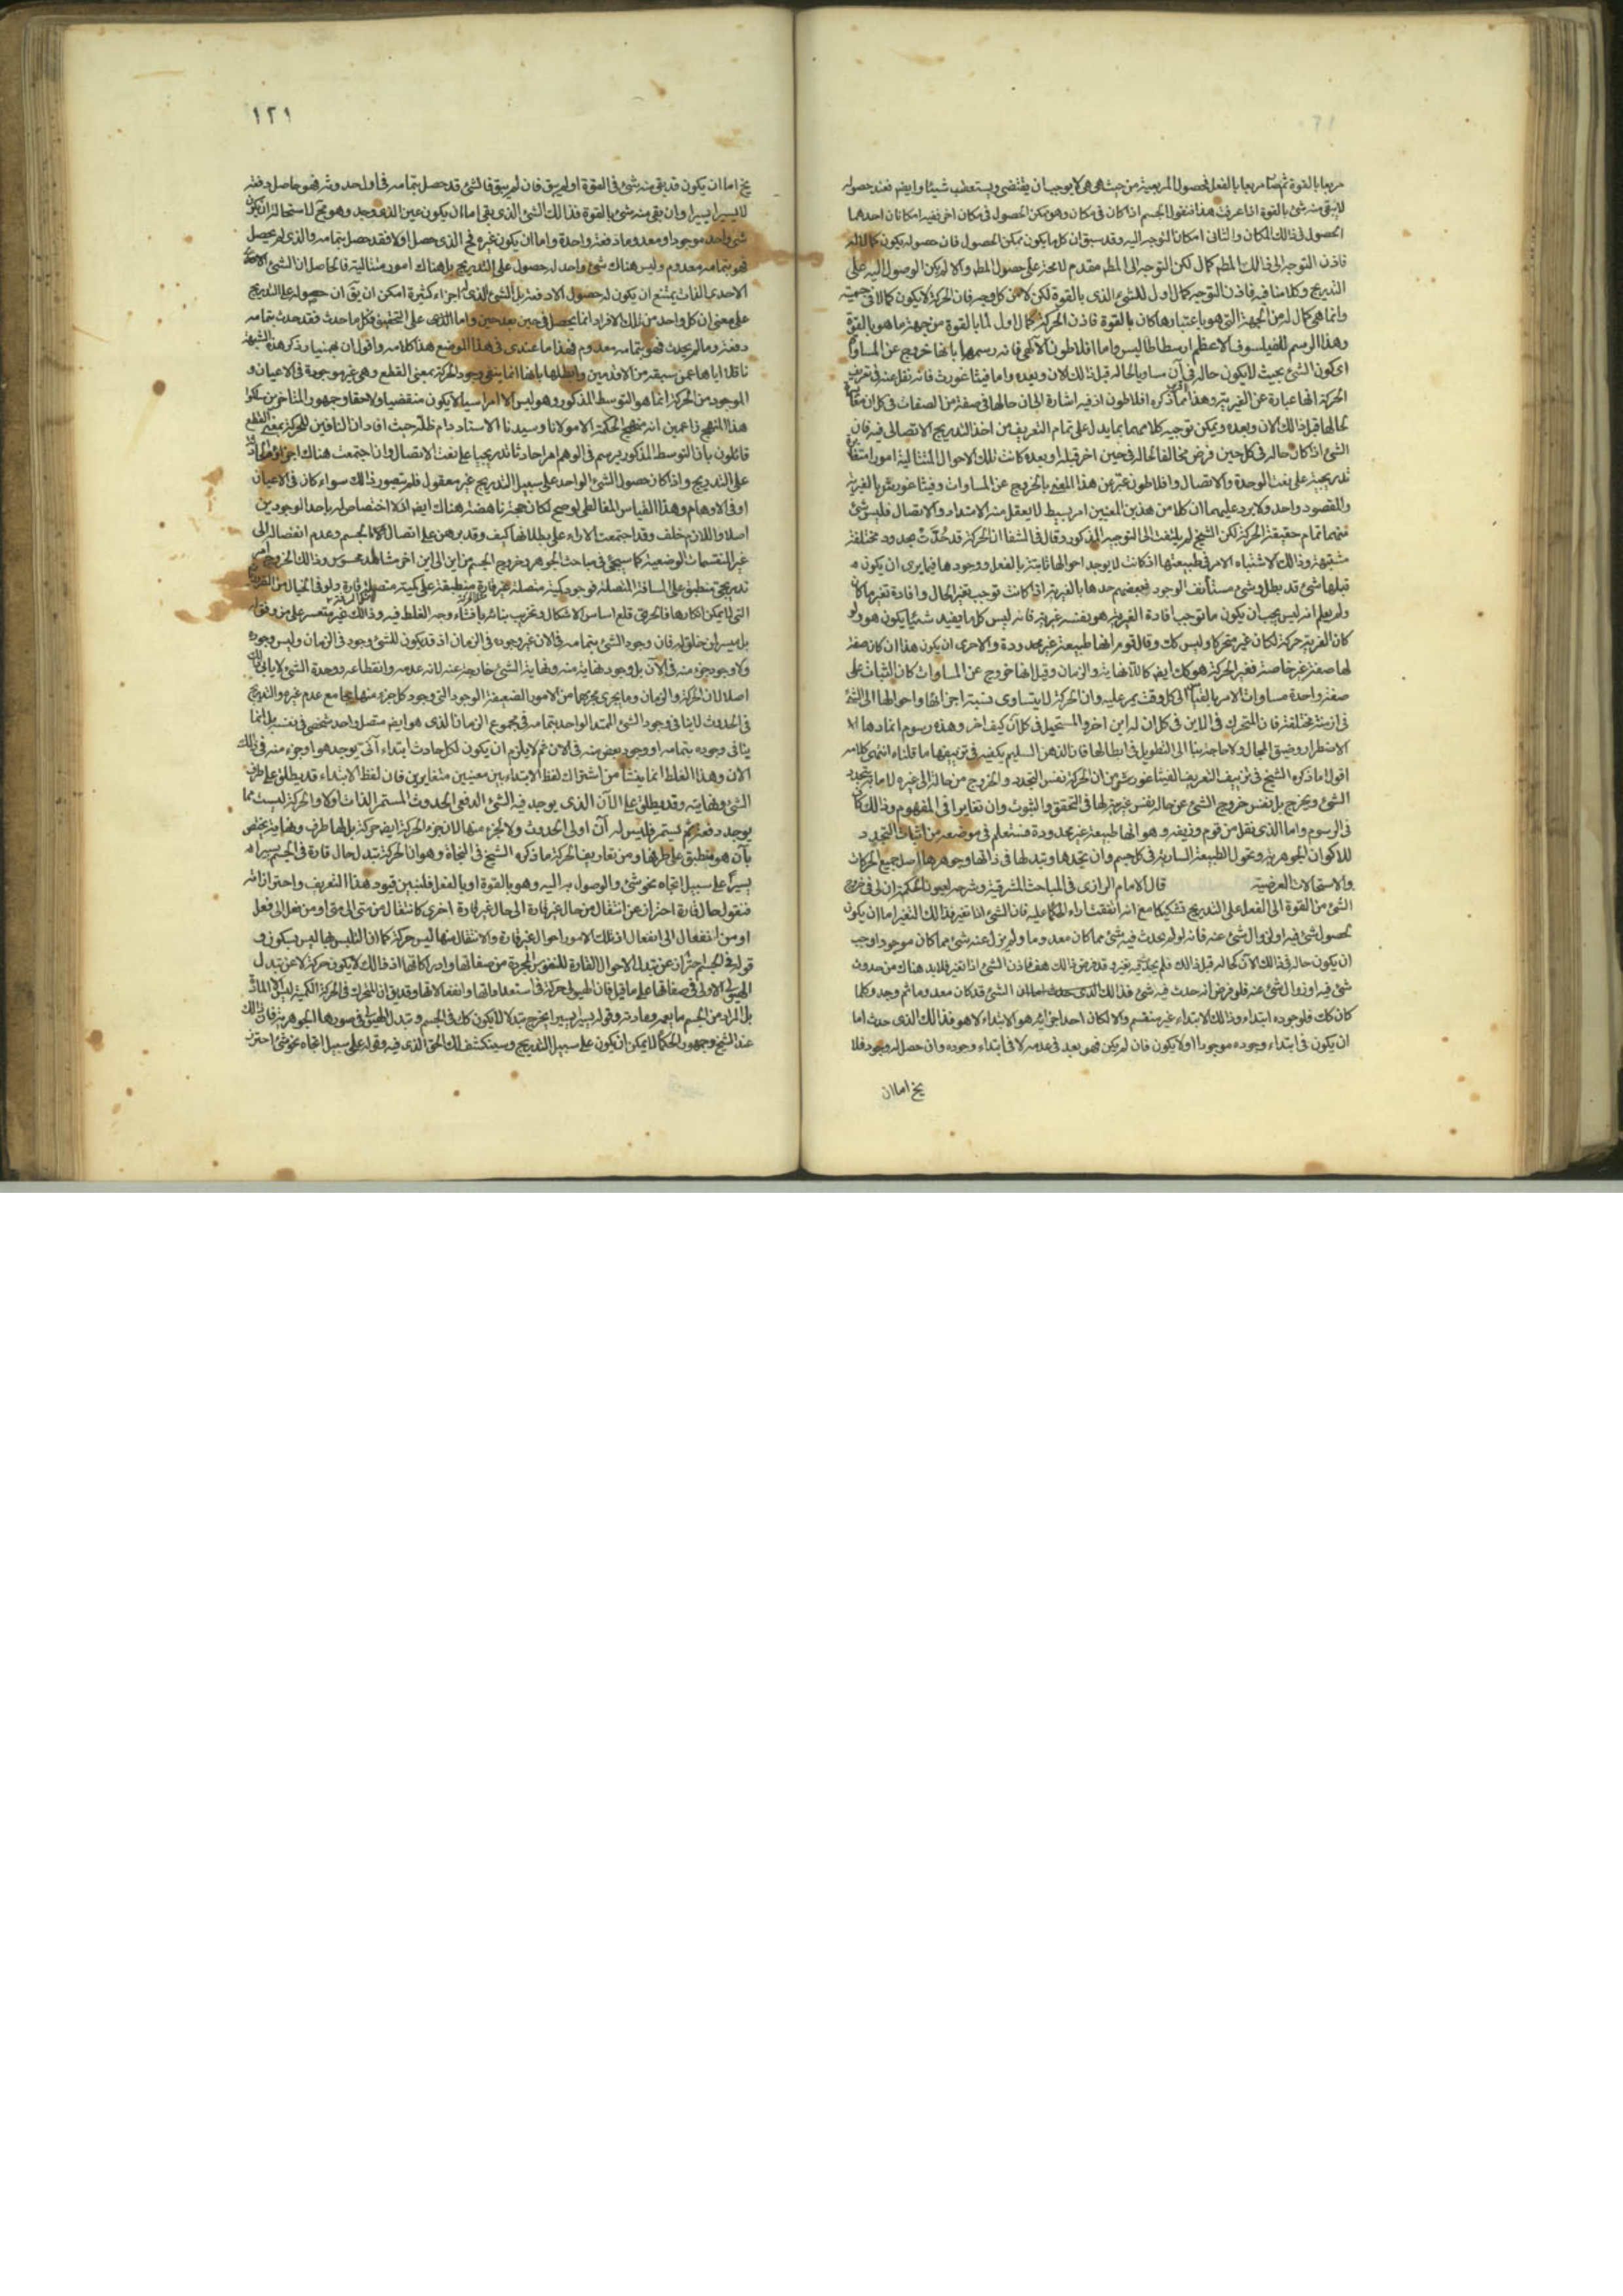 مربعا بالقوة ثم صار مربعا بالفعل فحصول المربعية من حيث هي هي لا يوجب ان يقتضى ويستعطب شيئا وايضم فعند حصوله
لايبقى منه شئ بالقوة اذا عرفت هذا فنقول الجسم اذا كان فى مكان وهو ممكن الحصول فى مكان اخر ففيه امكانان احدهما
الحصول فى ذالك المكان والثانى امكان التوجه اليه وقد سبق ان كل ما يكون ممكن الحصول فان حصوله يكون كمالا له
فاذن التوجه الى ذالك المطم كمال لكن التوجه الى المطم مقدم لا محة على حصول المطم والا لم يكن الوصول اليه على
التدريج وكلامنا فيه فاذن التوجه كمال اول للشئ الذى بالقوة لكن لا من كل وجه فان الحركة لا يكون كمالا فى جسميته
وانما هى كمال له من الجهة التى هو باعتبارها كان بالقوة فاذن الحركة كمال اول لما بالقوة من جهة ما هو بالقوة
وهذا الرسم للفيلسوف الاعظم ارسطاطاليس واما افلاطون الالهى فانه رسمها بانها خروج عن المساواة
اى كون الشئ بحيث لا يكون حاله فى آن مساويا لحاله قبل ذالك الان وبعده واما فيثاغورث فانه نقل عنه فى تعريف
الحركة انها عبارة عن الغيرية وهذا مما ذكره افلاطون اذ فيه اشارة الى ان حالها فى صفة من الصفات فى كل ان
لحالها قبل ذالك الان وبعده ويمكن توجيه كلامهما بما يدل على تمام التعريف من اخذ التدريج الاتصالى فيه فان
الشئ اذا كان حاله فى كل حين فرض مخالفا لحاله فى حين اخر قبله او بعده كانت تلك الاحوال المتتالية امورا
تدريجية على نعت الوحدة والاتصال وافلاطون عبر عن هذا المعنى بالخروج عن المساوات وفيثاغورث بالغيرية
والمقصود واحد ولا يرد عليهما ان كلا من هذين المعنيين امر بسيط لا يعقل منه الامتداد والاتصال فليس شئ
منهما تمام حقيقة الحركة لكن الشيخ لم يلتفت الى التوجيه المذكور وقال فى الشفا ان الحركة قد حدت بحدود مختلفة
مشتبهة وذالك لاشتباه الامر فى طبيعتها اذ كانت لا يوجد احوالها ثابتة بالفعل ووجودها فيما يرى ان يكون
قبلها شئ قد بطل وشئ مستأنف الوجود فبعضهم حدها بالغيرية اذ كانت توجب تغير الحال وافادة لغير ما كان
ولم يعلم انه ليس يجب ان يكون ما توجب افادة الغيرية هو بنفسه غيرية فانه ليس كل ما يفيد شيئا يكون هو ولو
كان الغيرية حركة لكان كل غير متحركا وليس كك وقال قوم انها طبيعة غير محدودة والاحرى ان يكون هذا ان كان صفة
لها صفة غير خاصة فغير الحركة هو كك ايضم كاللانهاية والزمان وقيل انها خروج عن المساوات كان الثبات على
صفة واحدة مساوات للامر بالقياس الى كل وقت يمر عليه وان الحركة لا يتساوى نسبة اجزائها واحوالها الى الشئ
فى ازمنة مختلفة فان المتحرك فى الاين فى كل ان له اين اخر والمستحيل فى كل آن كيف اخر وهذه رسوم انما دعا اليها
الاضطرار وضيق المجال ولا حاجة بنا الى التطويل فى ابطالها فان الذهن السليم يكفيه فى تزييفها ما قلناه انتهى كلامه
اقول اما ذكره الشيخ فى تزييف التعريف الفيثاغورثى من ان الحركة نفس التجدد والخروج من حالة الى غيره لا ما به يتجدد
الشئ ويخرج بل نفس خروج الشئ عن حاله نفس غيريته لها فى التحقق والثبوت وان تغايرا فى المفهوم وذالك كان
فى الرسوم واما الذى نقل من قوم وزيفه وهو انها طبيعة غير محدودة فستعلم فى موضعه من اثبات التجدد
للاكوان الجوهرية وتحول الطبيعة السارية فى كل جسم وان تجددها وتبدلها فى ذاتها وجوهرها اصل جميع الحركات
والاستحالات العرضية قال الامام الرازى فى المباحث المشرقية وشرحه لعيون الحكمة ان لى فى خروج
الشئ من القوة الى الفعل على التدريج تشكيكا مع انه اتفقت اراء الحكما عليه فان الشئ اذا تغير فذالك التغير اما ان يكون
لحصول شئ فيه او لزوال شئ عنه فانه لو لم يحدث فيه شئ مما كان معدوما ولم يزل عنه شئ مما كان موجودا وجب
ان يكون حاله فى ذالك الآن كحاله قبل ذالك فلم يتجدد فيه تغير وقد فرض ذالك هف فاذن الشئ اذا تغير فلا بد هناك من حدوث
شئ فيه او زوال شئ عنه فلو فرض انه حدث فيه شئ فذالك الذى حدث اما ان الشئ قد كان معدوما ثم وجد وكلما
كان كك فلوجوده ابتداء وذالك الابتداء غير منقسم والا لكان احد اجزائه هو الابتداء لا هو فذالك الذى حدث اما
ان يكون فى ابتداء وجوده موجودا اولا يكون فان لم يكن فهو بعد فى عدمه لا فى ابتداء وجوده وان حصل له وجود فلا
يخ اما ان
١٢١
يخ اما ان يكون قد بقى منه شئ فى القوة او لم يبق فان لم يبق فالشئ قد حصل بتمامه فى اول حدوثه فهو حاصل دفعة
لا يسيرا يسيرا وان بقى منه شئ بالقوة فذالك الشئ الذى بقى اما ان يكون عين الذى وجد وهو مح لاستحالة ان يكون
شئ واحد موجودا ومعدوما دفعة واحدة واما ان يكون غيره فح الذى حصل اولا فقد حصل بتمامه والذى لم يحصل
فهو بتمامه معدوم وليس هناك شئ واحد له حصول على التدريج بل هناك امور متتالية فالحاصل ان الشئ
الاحدى الذات يمتنع ان يكون له حصول الا دفعة بل الشئ الذى له اجزاء كثيرة امكن ان يق ان حصوله على التدريج
على معنى ان كل واحد من تلك الافراد انما يحصل فى حين بعد حين واما الذى على التحقيق فكل ما حدث فقد حدث بتمامه
دفعة وما لم يحدث فهو بتمامه معدوم فهذا ما عندى فى هذا الموضع هذا كلامه واقول ان بهمنيار ذكر هذه الشبهة
ناقلا اياها عمن سبقه من الاقدمين وابطلها بانها انما ينفى وجود الحركة بمعنى القطع وهى غير موجودة فى الاعيان و
الموجود من الحركة انما هو التوسط المذكور وهو ليس الا امرا سيالا يكون منقضيا ولاحقا وجمهور المتاخرين سلكوا
هذا المنهج زاعمين انه منهج الحكمة الا مولانا وسيدنا الاستاد دام ظله حيث افاد ان النافين للحركة بمعنى القطع
قائلون بان التوسط المذكور يرسم فى الوهم امرا حادثا تدريجيا على نعت الاتصال وان اجتمعت هناك اجزاؤه
على التدريج واذا كان حصول الشئ الواحد على سبيل التدريج غير معقول فلم يتصور ذالك سواء كان فى الاعيان
او فى الاوهام وهذا القياس المغالطى لو صح لكان حجة ناهضة هناك ايضم اذ لا اختصاص له باحد الوجودين
اصلا واللازم خلف وقد اجتمعت الاراء على بطلانها كيف وقد برهن على اتصال الجسم وعدم انفصاله الى
غير المنقسمات الوضعية كما سيجئ فى مباحث الجوهر وخروج الجسم من اين الى اين اخر مشاهد محسوس وذالك الخروج امر
تدريجى منطبق على المسافة المتصلة فوجود كمية متصلة غير قارة منطبقة على كمية متصلة قارة ولو فى الخيال من
التى لا يمكن انكارها فالحرى قلع اساس الاشكال وتخريب بنائه بافشاء وجه الغلط فيه وذالك غير متعسر على من وفق له
بل ميسر لمن خلق له فان وجود الشئ بتمامه فى الان غير وجوده فى الزمان اذ قد يكون للشئ وجود فى الزمان وليس وجوده
ولا وجود جزء منه فى الآن بل وجود نهاية منه ونهاية الشئ خارجة عنه لانه عدمه وانقطاعه ووحدة الشئ لا يابى ذلك
اصلا لان الحركة والزمان وما يجرى مجريهما من الامور الضعيفة الوجود التى وجود كل جزء منها يجامع عدم غيره والتدريج
فى الحدوث لاينافى وجود الشئ الممتد الواحد بتمامه فى مجموع الزمان الذى هو ايضم متصل واحد شخصى فى نفسه بل انما
ينافى وجوده بتمامه او وجود بعض منه فى الان ثم لا يلزم ان يكون لكل حادث ابتداء آنى يوجد هو او جزء منه فى ذلك
الان وهذا الغلط انما ينشأ من اشتراك لفظ الابتداء بين معنيين متغايرين فان لفظ الابتداء قد يطلق على طرف
الشئ ونهايته وقد يطلق على الآن الذى يوجد فيه الشئ الدفعى الحدوث المستمر الذات اولا والحركة ليست مما
يوجد دفعة ثم يستمر فليس له آن اولى الحدوث ولا لجزء منها لان جزء الحركة ايضا حركة بل لها طرف ونهاية يختص
بآن هو منطبق على طرفها ومن تعاريف الحركة ما ذكره الشيخ فى النجاة وهو ان الحركة تبدل حال قارة فى الجسم يسيرا
يسيرا على سبيل اتجاه نحو شئ والوصول به اليه وهو بالقوة او بالفعل فلنبين قيود هذا التعريف واحترازاته
فنقول حال قارة احتراز عن انتقال من حال غير قارة الى حال غير قارة اخرى كانتقال من متى الى متى او من فعل الى فعل
او من انفعال الى انفعال اذ تلك الامور احوال غير قارة والانتقال منها ليس حركة كما ان التلبس بها ليس بسكون و
قوله فى الجسم احتراز عن تبدل الاحوال القارة للنفوس المجردة من صفاتها وادراكاتها اذ ذالك لا يكون حركة لا عن تبدل
الهيولى الاولى فى صفاتها على ما قيل فان الهيولى حركة فى استعداداتها وانفعالاتها وقد يق ان المتحرك فى الحركة الكمية ليس الا المادة
بل المراد من الجسم ما يعمه ومادته وقوله يسيرا يسيرا يخرج تبدلا لا يكون كك فى الجسم وتبدل الهيولى فى صورها الجوهرية فان ذالك
عند الشيخ وجمهور الحكما لا يمكن ان يكون على سبيل التدريج وسينكشف لك الحق الذى فيه وقوله على سبيل اتجاه نحو شئ احترز